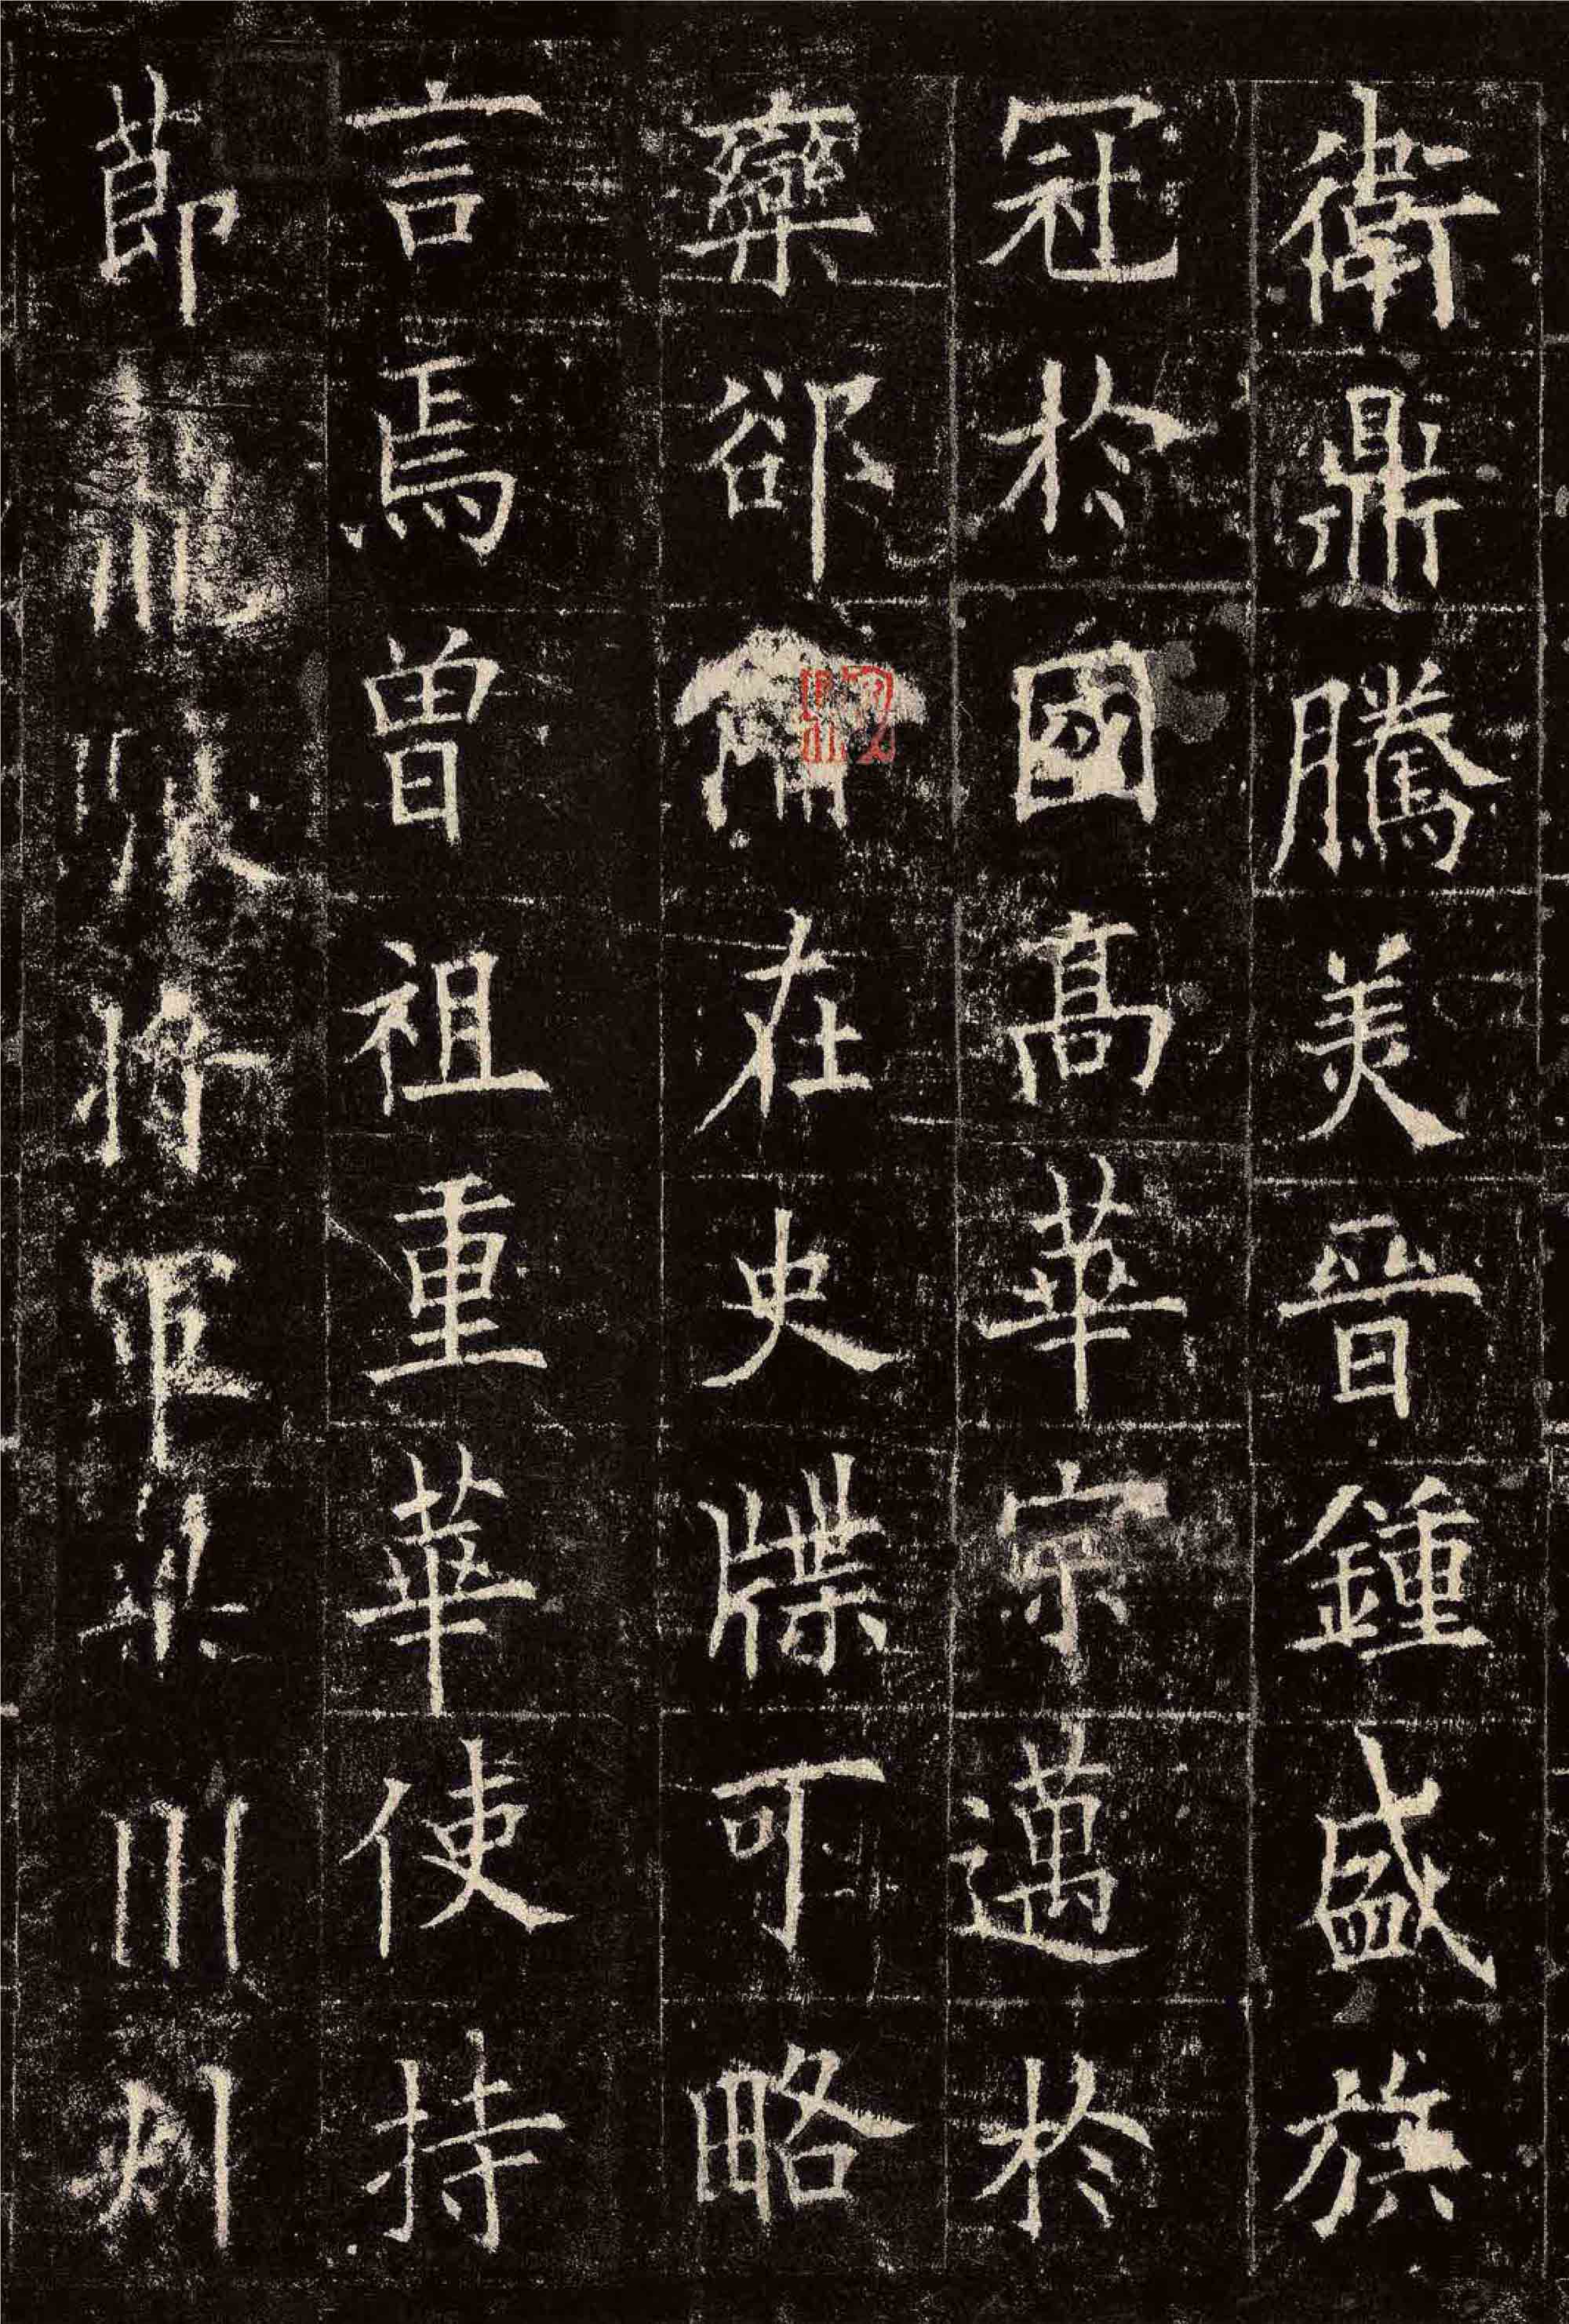 衛鼎騰美晉鍾盛族
冠於國高華宗邁於
欒郤備在史牒可略
言焉曾祖重華使持
節龍驤將軍梁州刺